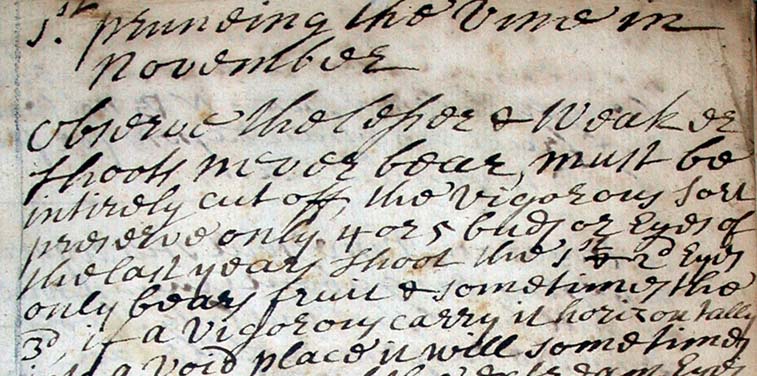 1st pruneing the Vine in
November
Observe the lesser & Weaker
shoots never bear, must be
intirely cut off, the vigorous sort
preserve only 4 or 5 buds or Eyes of
the last years shoot the 1st & 2d Eyes
only bears fruit & sometimes the
3d, if a vigorous carry it horizontally
a void place it will sometimes
Eyes